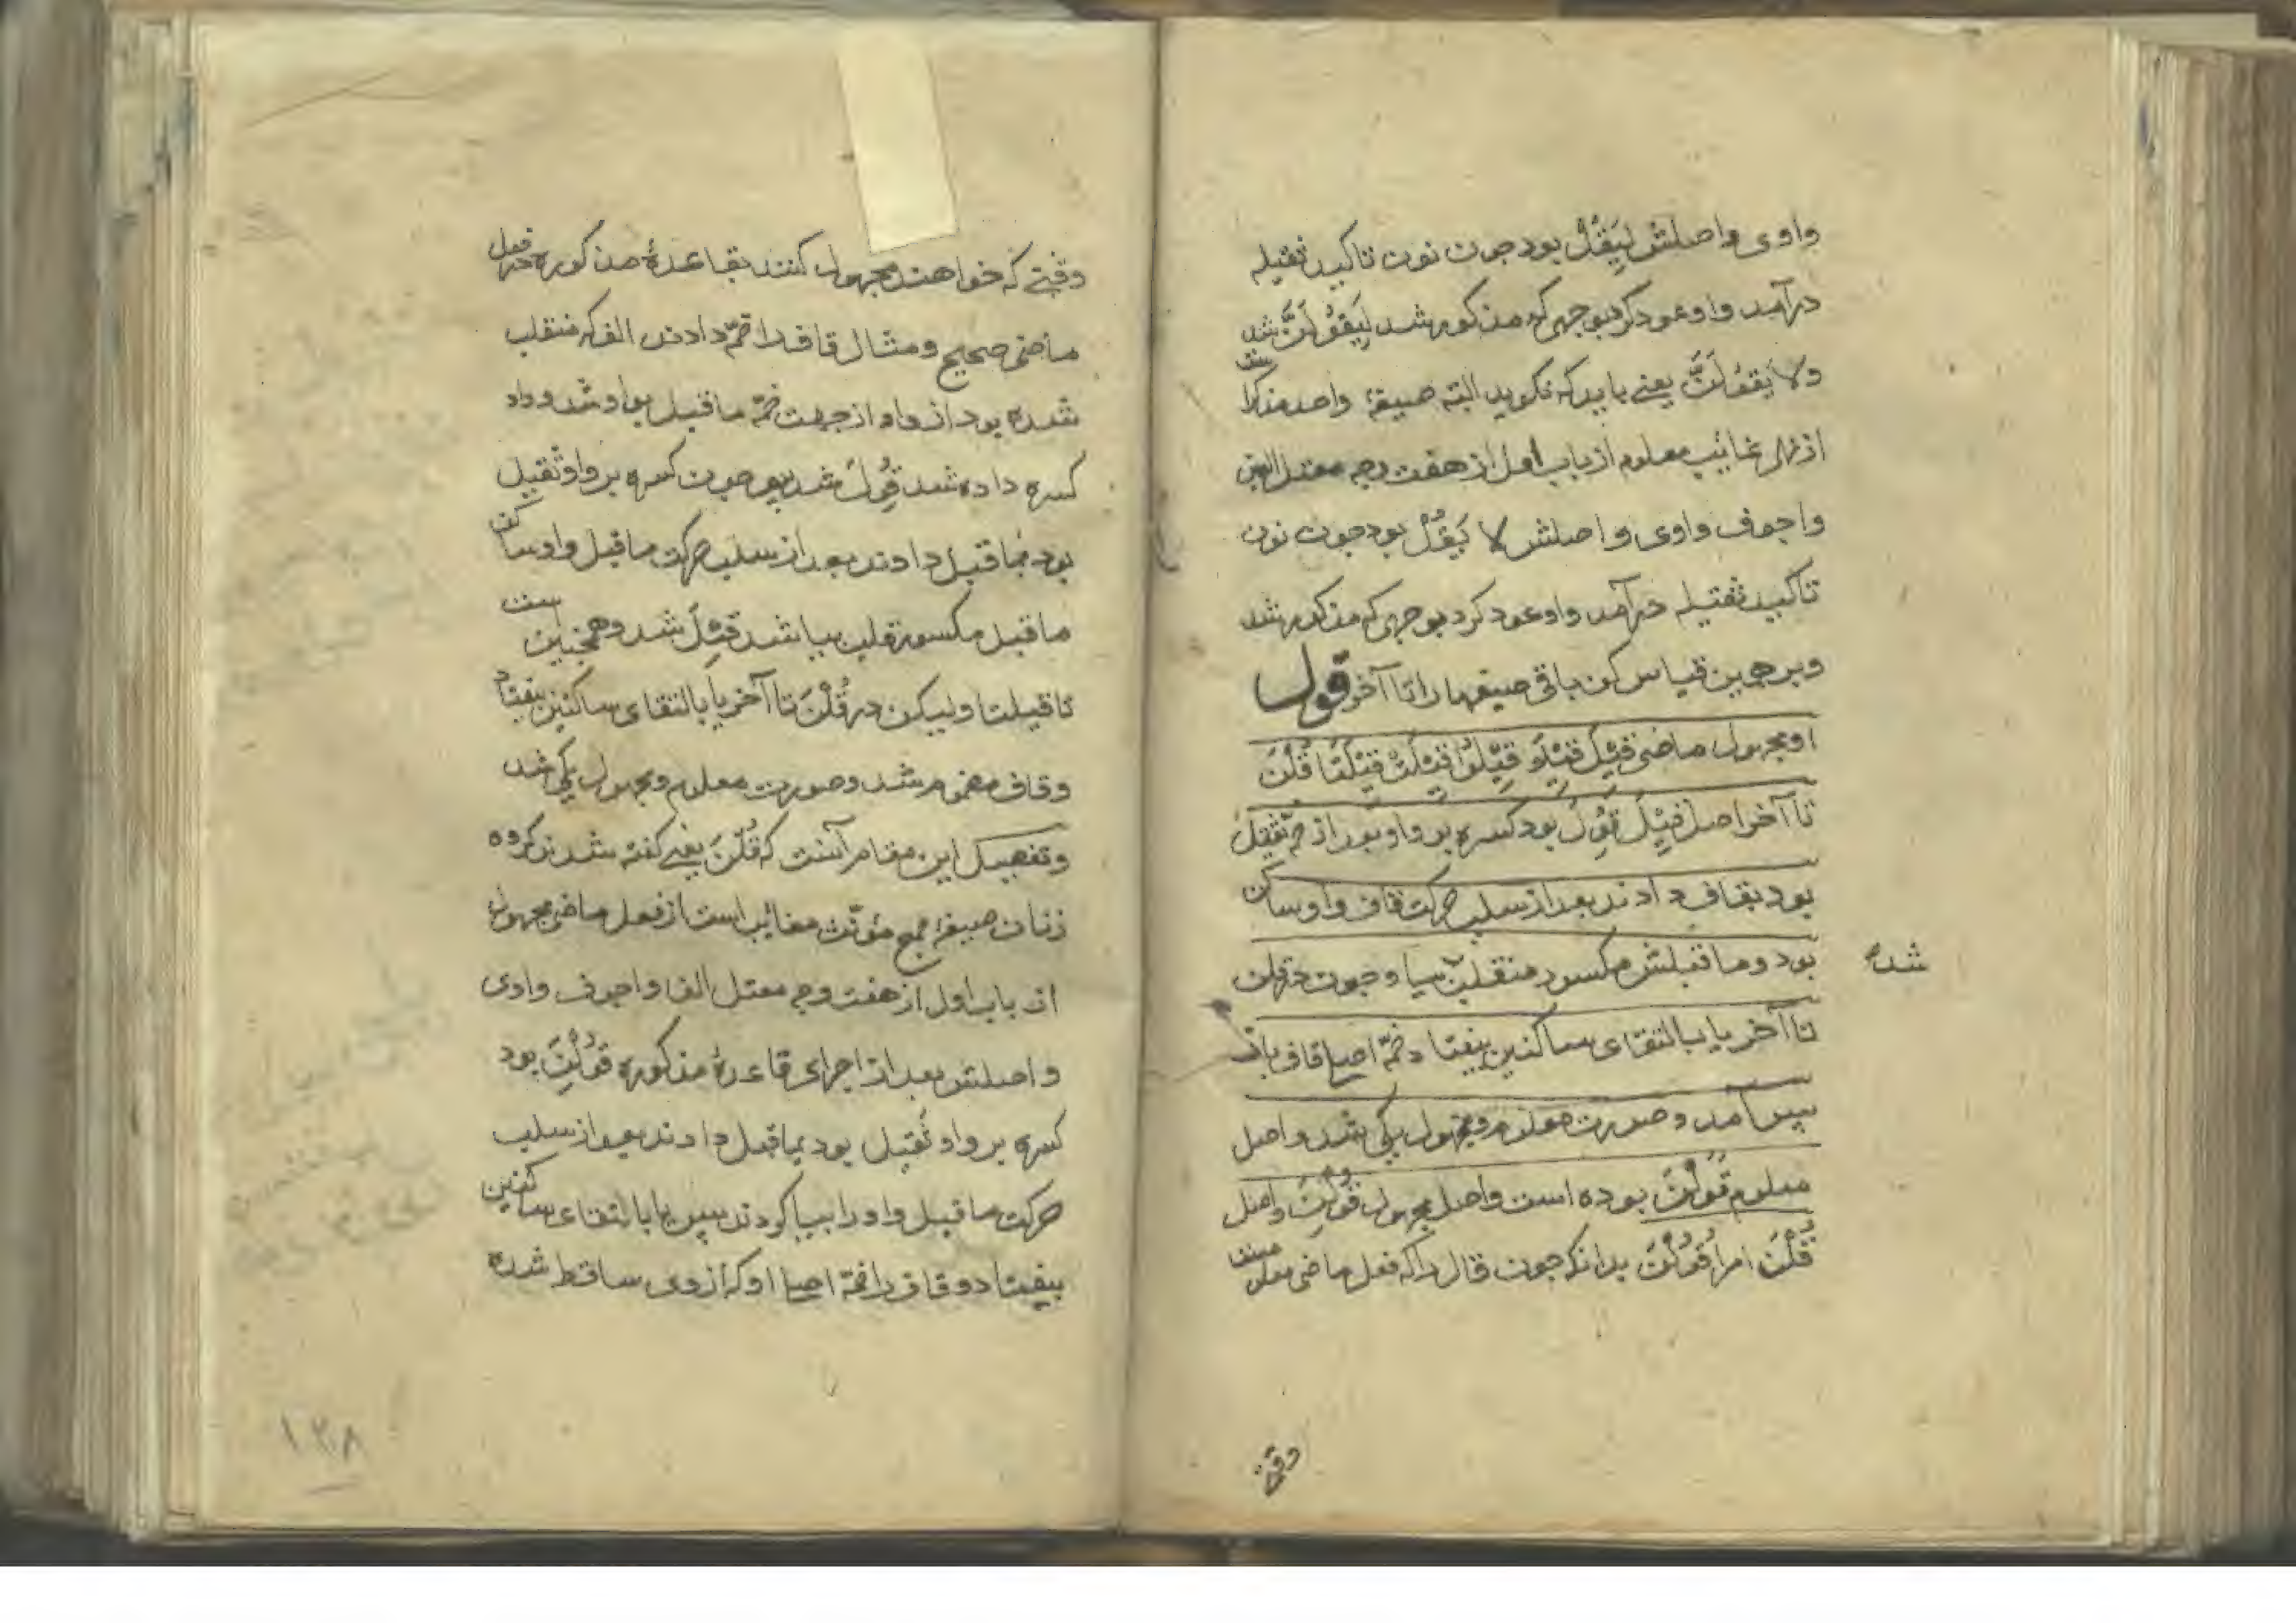 واوی واصلش لِیَقُلْ بود چون نون تاکید ثقیله
درآمد واو عود کرد بوجهی که مذکور شد لِیَقُولَنَّ شد
ولا یَقُولَنَّ یعنی باید که نکوید البته صیغهٔ واحد مذکر است
از نهی غائب معلوم از باب اول از هفت وجه معتل العین
واجوف واوی واصلش لا یَقُلْ بود چون نون
تاکید ثقیله درآمد واو عود کرد بوجهی که مذکور شد
وبر همین قیاس کن باقی صیغها را تا آخر قوله
او مجهول ماضی قِیْلَ قِیْلَا قِیْلُوْا قِیْلَتْ قِیْلَتَا قُلْنَ
تا آخر اصل قِیْلَ قُوِلَ بود کسره بر واو بعد از ضمّه ثقیل
بود بقاف دادند بعد از سلب حرکت قاف واو ساکن
بود وما قبلش مکسور منقلب بیا وچون در قلن
شده
تا آخر یا بالتقای ساکنین بیفتاد ضمّه اصلی قاف باز
پس آمد وصورت معلوم ومجهول یکی شد واصل
معلوم قَوُلْنَ بوده است واصل مجهول قُوِلْنَ واصل
قُلْنَ امر اُقْوُلْنَ بدانکه چون قال را که فعل ماضی معلوم است
وقتی
وقتی که خواهند مجهول کنند بقاعدهٔ مذکوره در فعل
ماضی صحیح ومثال قاف را ضمّه دادند الف که منقلب
شده بود از واو از جهت ضمّه ما قبل بواو شد وواو
کسره داده شد قُوِلَ شد پس چون کسره بر واو ثقیل
بود بما قبل دادند بعد از سلب حرکت ما قبل واو ساکن
ما قبل مکسور قلب بیا شد قِیْلَ شد وهمچنین است
تا قیلتا ولیکن در قُلْنَ تا آخر یا بالتقای ساکنین بیفتاد
وقاف مضموم شد وصورت معلوم ومجهول یکی شد
وتفصیل این مقام آنست که قُلْنَ یعنی کفته شدند کروه
زنان صیغهٔ جمع مؤنّث مغایب است از فعل ماضی مجهول
از باب اول از هفت وجه معتل الفا واجوف واوی
واصلش بعد از اجرای قاعدهٔ مذکوره قُوِلْنَ بود
کسره بر واو ثقیل بود بما قبل دادند بعد از سلب
حرکت ما قبل واو را بیا کردند پس یا بالتقای ساکنین
بیفتاد وقاف را ضمّه اصلی او که از وی ساقط شده
۱۲۸